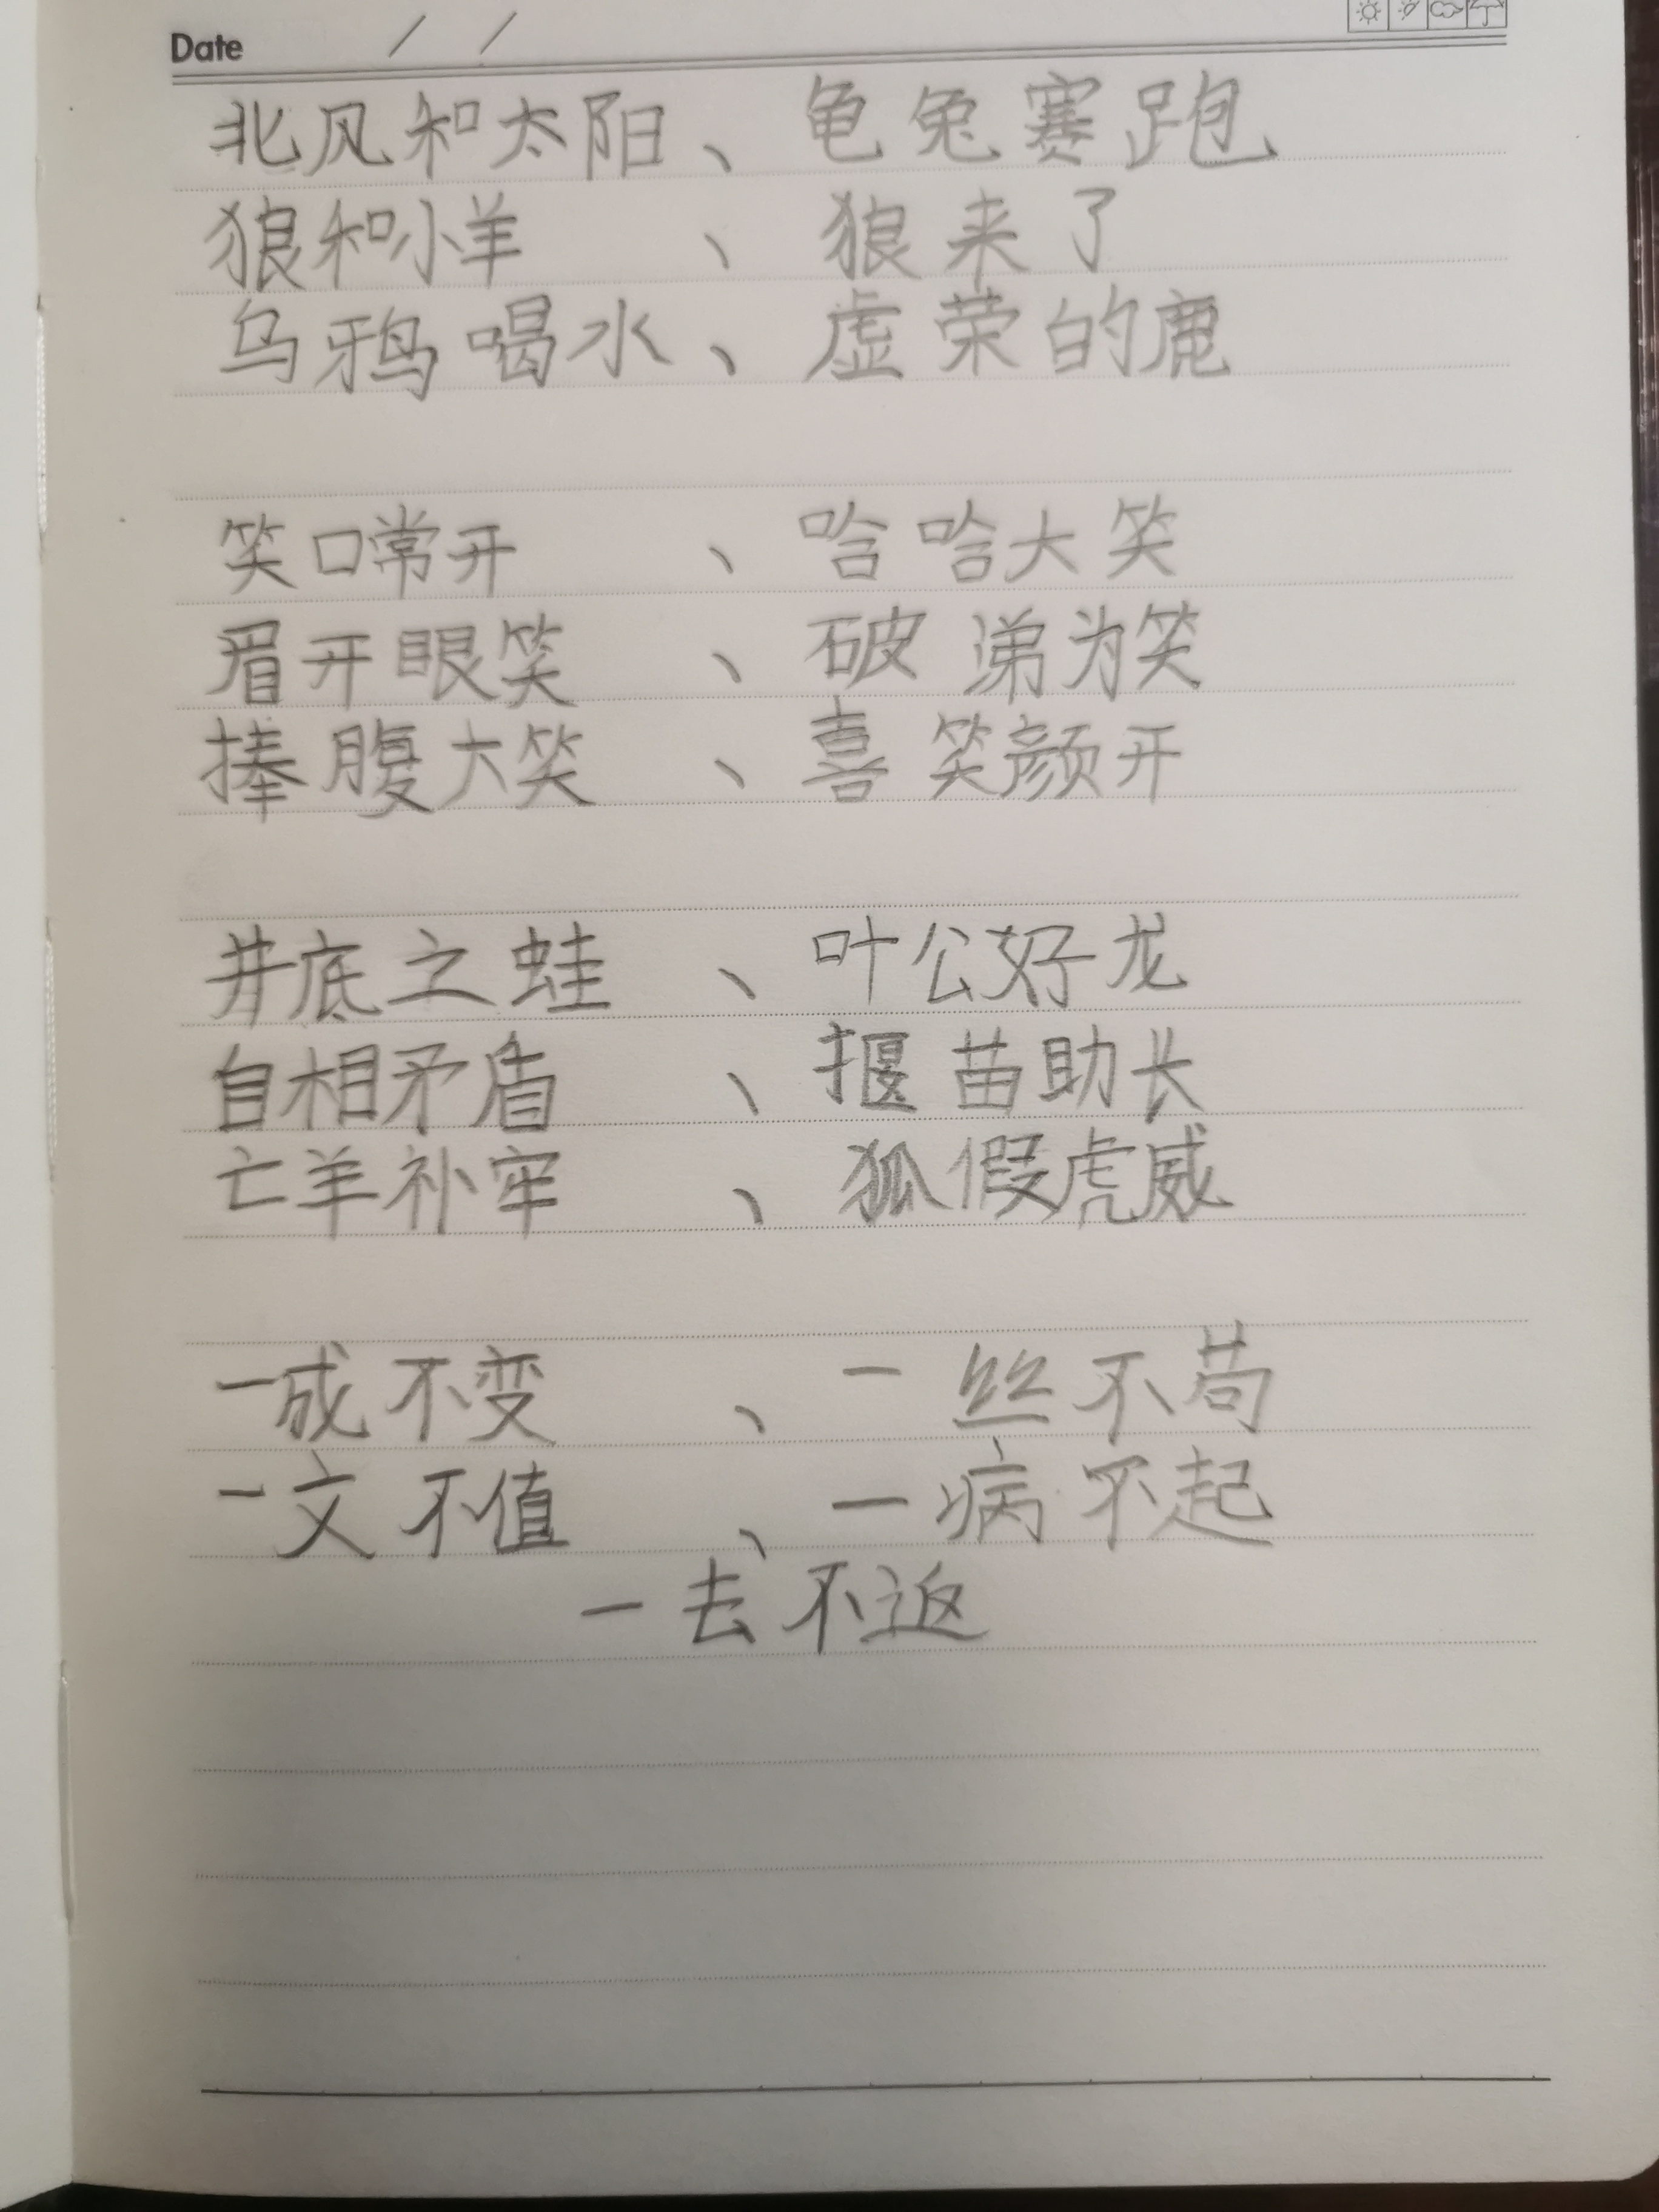 Date / /
北风和太阳、龟兔赛跑
狼和小羊、狼来了
乌鸦喝水、虚荣的鹿
笑口常开、哈哈大笑
眉开眼笑、破涕为笑
捧腹大笑、喜笑颜开
井底之蛙、叶公好龙
自相矛盾、揠苗助长
亡羊补牢、狐假虎威
一成不变、一丝不苟
一文不值、一病不起
一去不返